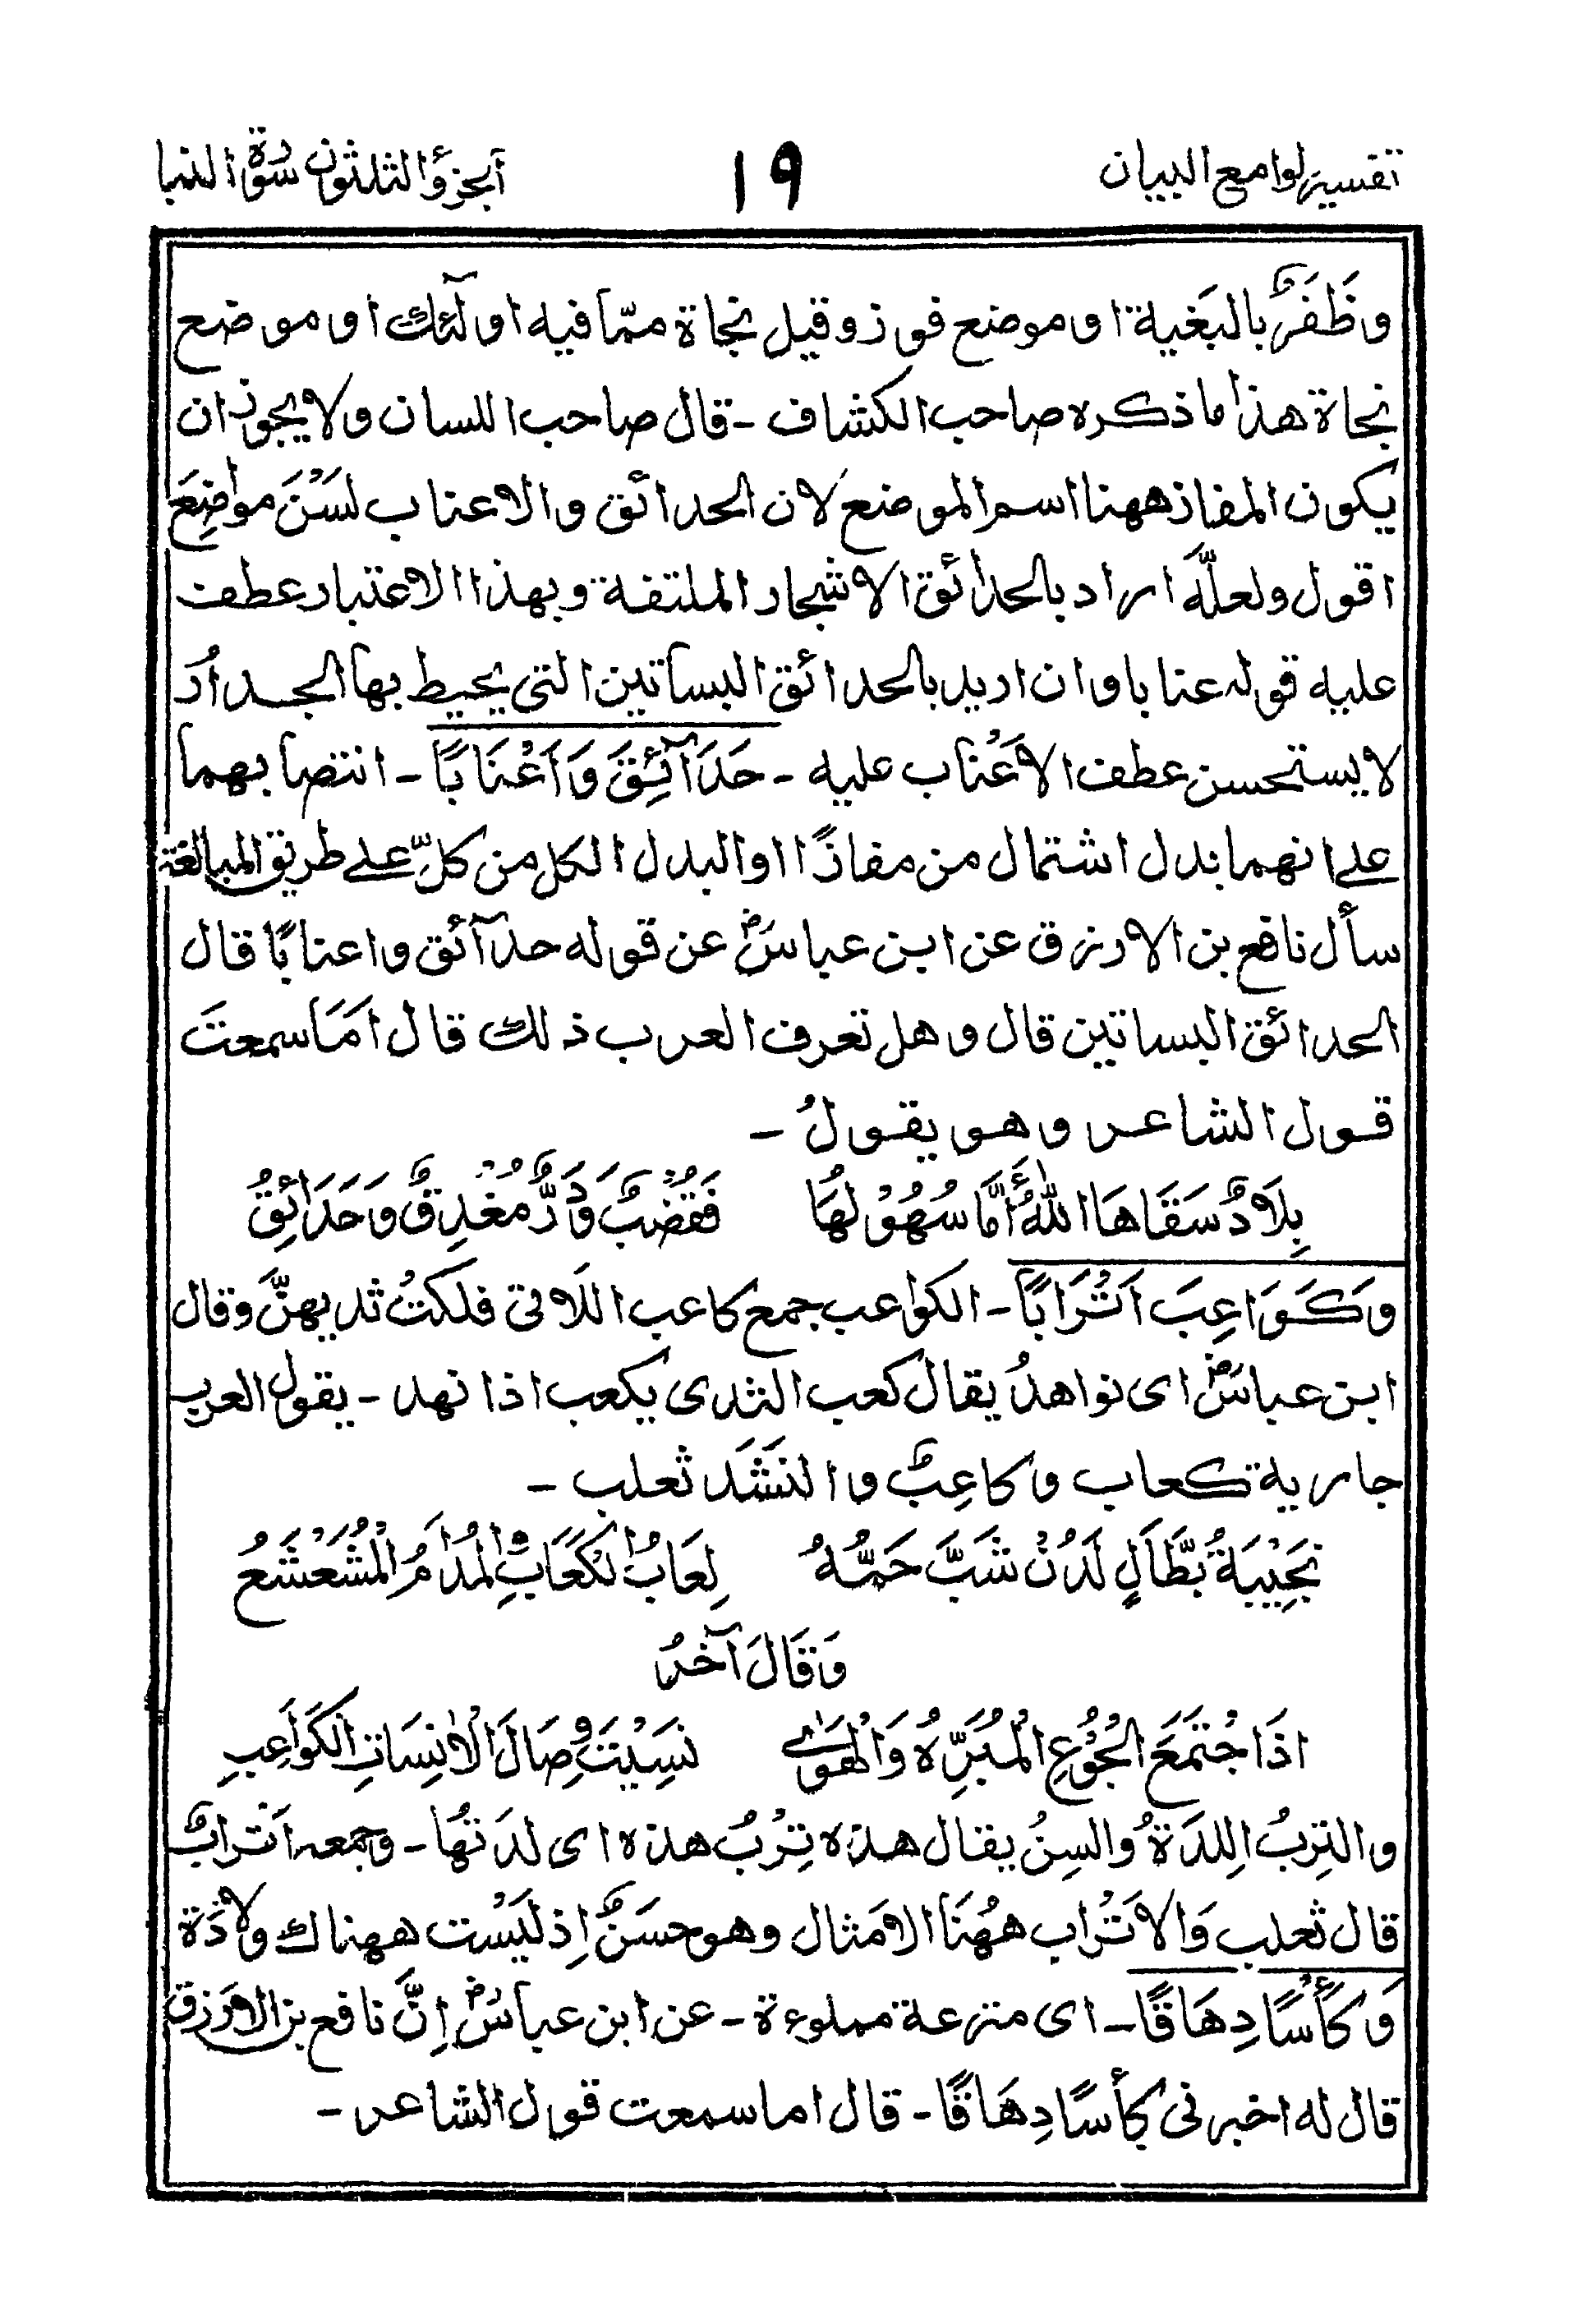 تفسير لوامع البيان ١٩ الجزؤ الثلثون سورة النبا
وظَفَرٌ بالبَغية او موضع فوز وقيل نجاة ممّا فيه اولٓئك او موضع
نجاة هذا ما ذكره صاحب الكشاف - قال صاحب اللسان ولا يجوز ان
يكون المفاز ههنا اسم الموضع لان الحدائق والاعناب لسْنَ مواضِعَ
اقول ولعلّه اراد بالحدائق الاشجار الملتفة وبهذا الاعتبار عطف
عليه قوله عنابا وان اريد بالحدائق البساتين التى يحيط بها الجدارُ
لا يستحسن عطف الاَعْناب عليه - حَدَآئِقَ وَاَعْنَابًا - انتصابهما
على انهما بدل اشتمال من مفازًا او البدل الكل من كلّ على طريق المبالغة
سأل نافع بن الازرق عن ابن عباسؓ عن قوله حدآئق واعنابًا قال
الحدائق البساتين قال وهل تعرف العرب ذلك قال اَمَا سمعتَ
قول الشاعر وهو يقولُ -
بِلَادٌ سَقَاهَا اللّٰهُ أَمَّا سُهُوْلُهَا فَقُضْبٌ وَدَرٌّ مُغْدِقٌ وَحَدَائِقُ
وَكَوَاعِبَ اَتْرَابًا - الكواعب جمع كاعب اللَاتى فلكتُ ثديهنَّ وقال
ابن عباسؓ اى نواهدُ يقال كعب الثدى يكعب اذا نهد - يقول العرب
جارية كعاب وكاعِبٌ والنشَدَ ثعلب -
نَجِيْبَةُ بَطَّالٍ لَدُنْ شَبَّ حَمُّهُ لِعَابُ الْكَعَابِ وَالْمُدَامُ الْمُشَعْشَعُ
وَقَالَ آخَرُ
اذَا جْتَمَعَ الْجُوْعُ الْمُبَرِّهُ وَالْهَوٰى نَسِيْتَ وِصَالَ الْاٰنِسَاتِ الْكَوَاعِبِ
والتِربُ الِلدَةُ والسِنُ يقال هذه تِرْبُ هذه اى لدَتُها - وجمعه اَتْرابٌ
قال ثعلب وَالاَتْراب هٰهُنَا الامَثال وهو حسَنٌ اِذ ليَسْت ههناك ولادَة
وَكَأْسًا دِهَاقًا - اى مترعة مملوءة - عن ابن عباسؓ اِنَّ نافع بن الازرق
قال له اخبرنى كأسًا دِهَاقًا - قال اما سمعت قول الشاعر -